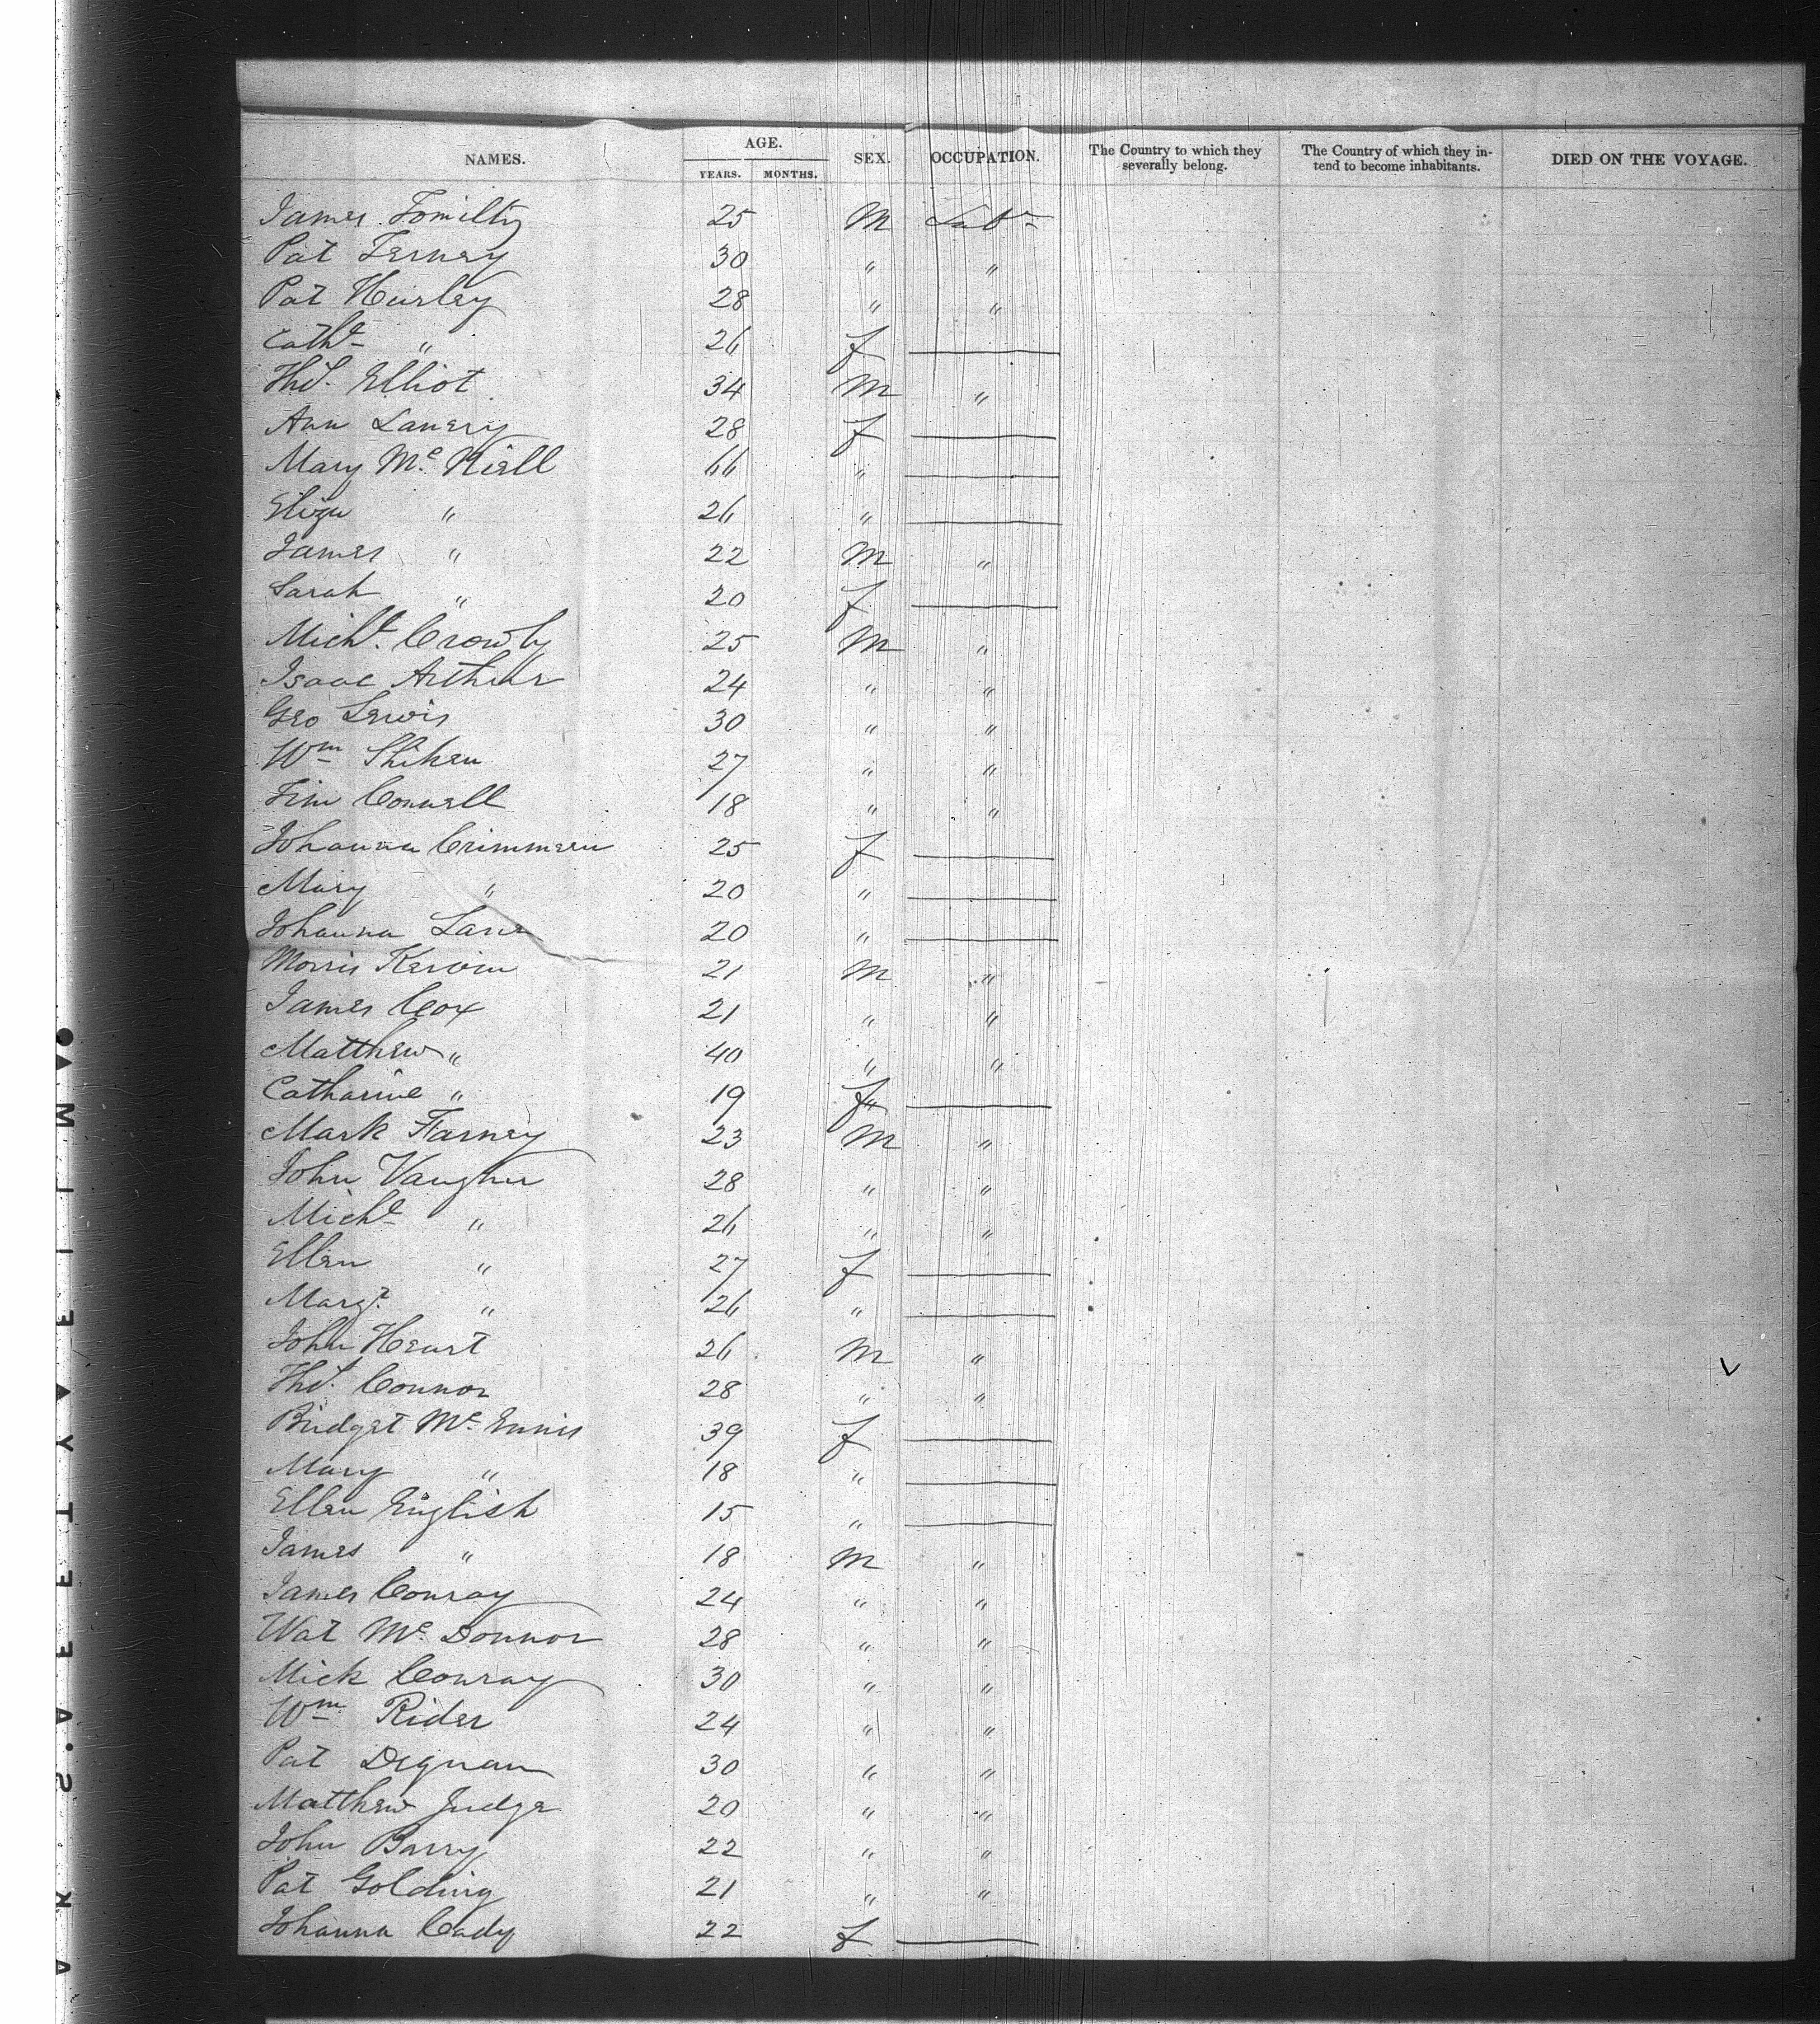 NAMES. AGE. SEX. OCCUPATION. The Country to which they severally belong. The Country of which they intend to become inhabitants. DIED ON THE VOYAGE.
YEARS. MONTHS.
James Tomilty 25 M Labr
Pat Ferney 30 " "
Pat Hurley 28 " "
Cathe " 26 f —
Thos. Elliot 34 M "
Ann Lanery 28 f —
Mary Mc Niell 66 " —
Eliza " 26 " —
James " 22 M "
Sarah " 20 f —
Michl. Crowly 25 M "
Isaac Arthur 24 " "
Geo Lewis 30 " "
Wm Shiken 27 " "
Tim Connell 18 " "
Johanna Crimmeen 25 f —
Mary " 20 " —
Johanna Lane 20 " —
Morris Kervin 21 M "
James Cox 21 " "
Matthew " 40 " "
Catharine " 19 f —
Mark Farney 23 M "
John Vaughn 28 " "
Michl " 26 " "
Ellen " 27 f —
Margt. " 26 " —
John Heurt 26 M "
Thos. Connor 28 " "
Bridget Mc Ennis 39 f —
Mary " 18 " —
Ellen English 15 " —
James " 18 M "
James Conray 24 " "
Wat Mc. Donnor 28 " "
Mick Conray 30 " "
Wm Rider 24 " "
Pat Dignan 30 " "
Matthew Judge 20 " "
John Barry 22 " "
Pat Golding 21 " "
Johanna Cady 22 f —